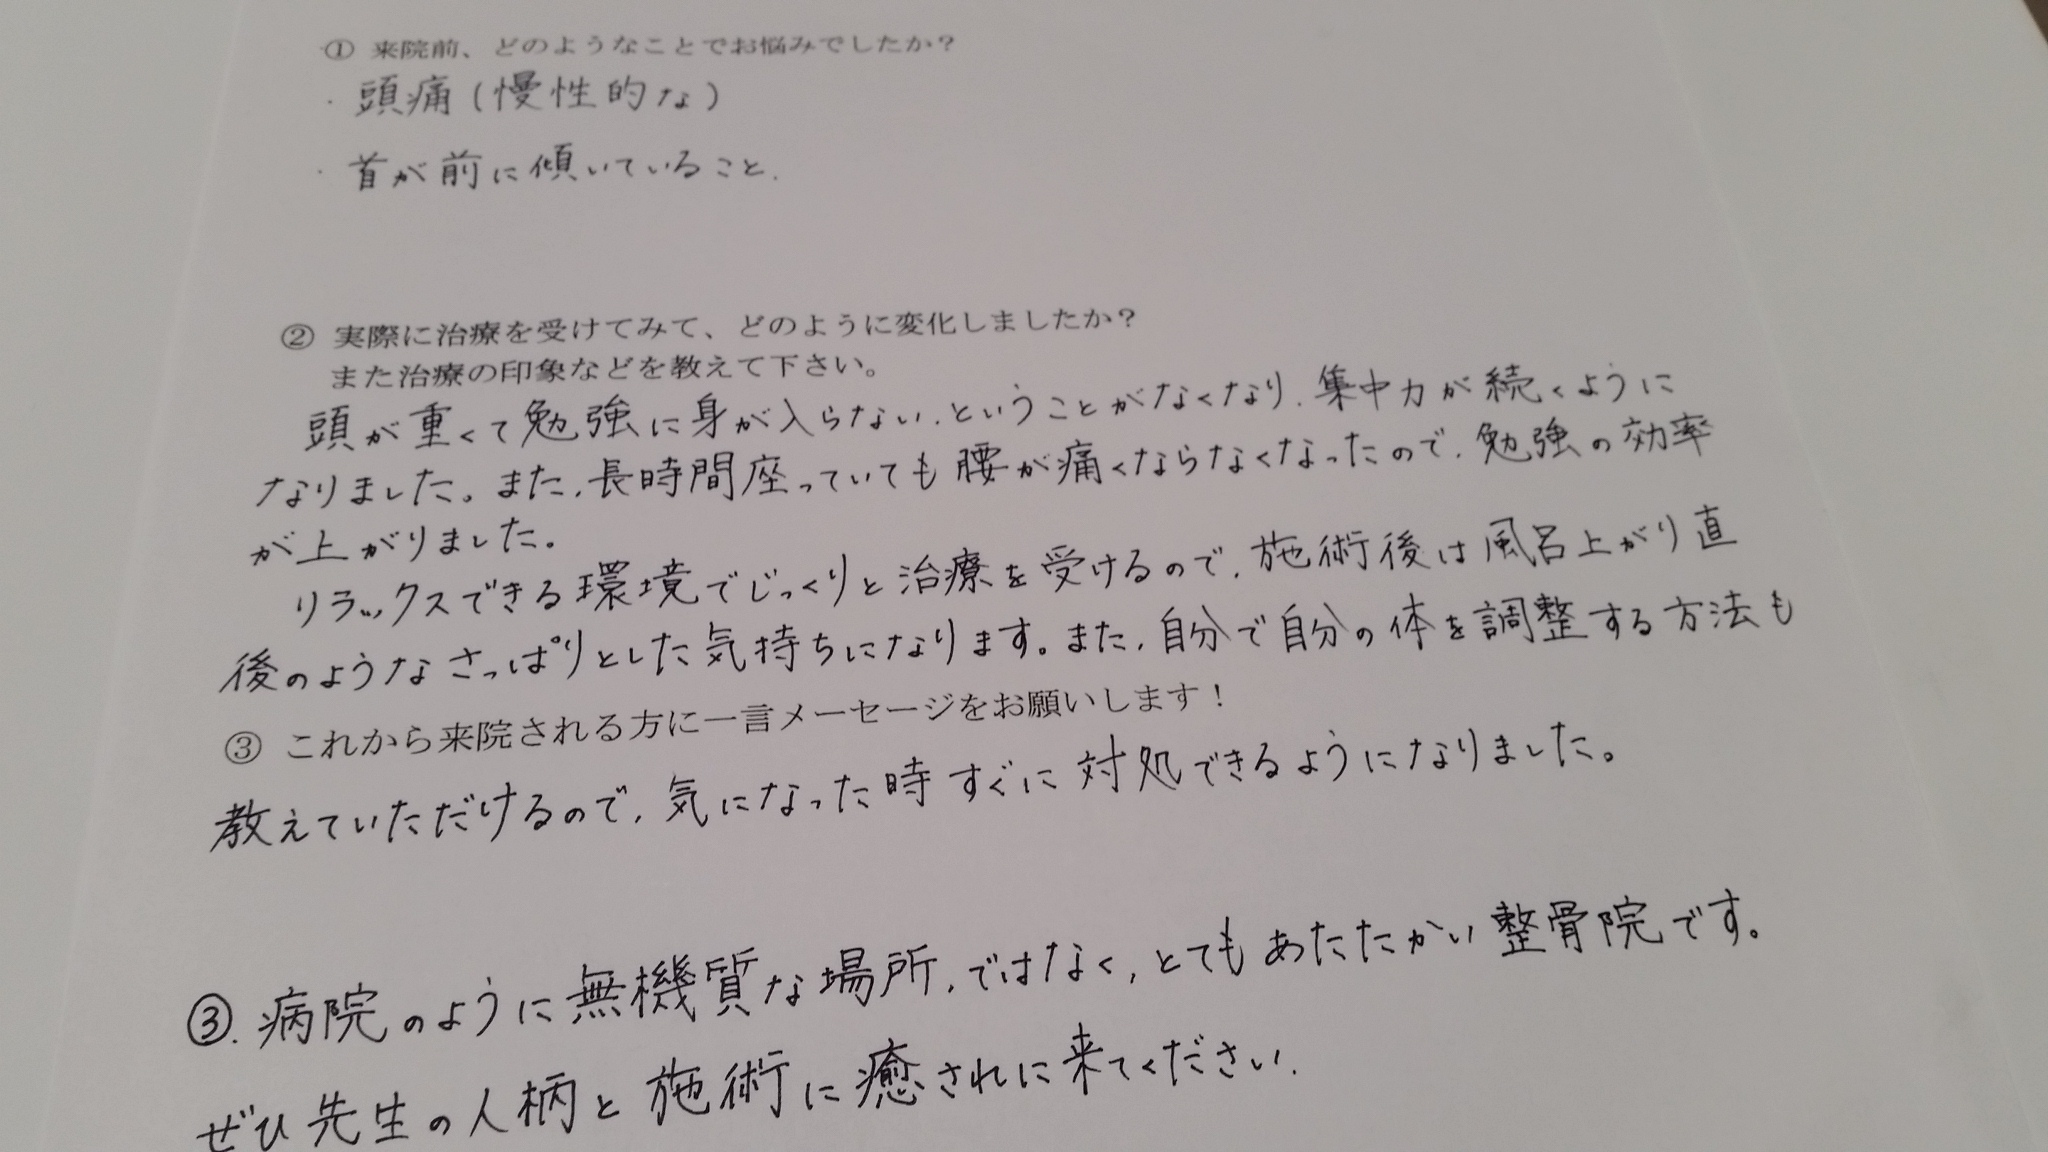 ① 来院前、どのようなことでお悩みでしたか？
・頭痛(慢性的な)
・首が前に傾いていること.
② 実際に治療を受けてみて、どのように変化しましたか？
また治療の印象などを教えて下さい。
頭が重くて勉強に身が入らない、ということがなくなり、集中力が続くように
なりました。また、長時間座っていても腰が痛くならなくなったので、勉強の効率
が上がりました。
リラックスできる環境でじっくりと治療を受けるので、施術後は風呂上がり直
後のようなさっぱりとした気持ちになります。また、自分で自分の体を調整する方法も
③ これから来院される方に一言メーセージをお願いします！
教えていただけるので、気になった時すぐに対処できるようになりました。
③. 病院のように無機質な場所、ではなく、とてもあたたかい整骨院です。
ぜひ先生の人柄と施術に癒されに来てください.